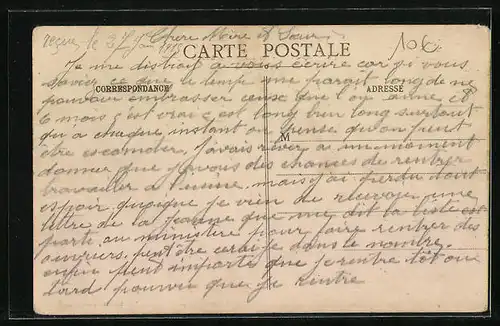 reçue le 27 Juin 1915 Chère Mère et Sœur 10€
CARTE POSTALE
Je me distrait a vous écrire car si vous
saviez ce que le temp me parait long de ne
CORRESPONDANCE ADRESSE
pouvoir embrasser ceuse que l'on aime et
6 mois c'est vrai c'est long bien long surtout
M
qu a chaque instant on pense qu on peut
être escamoter. J'avais rêver a un moment
donner que j'avais des chances de rentrer
travailler a l'usine. mais j'ai perdu tout
espoir quoique je vien de recevoir une
lettre de la Jeanne que me dit la liste est
partie au ministère pour faire rentrer des
peut être serai je dans le nombre.
enfin peut importe que je rentre tôt ou
tard pourvu que je rentre